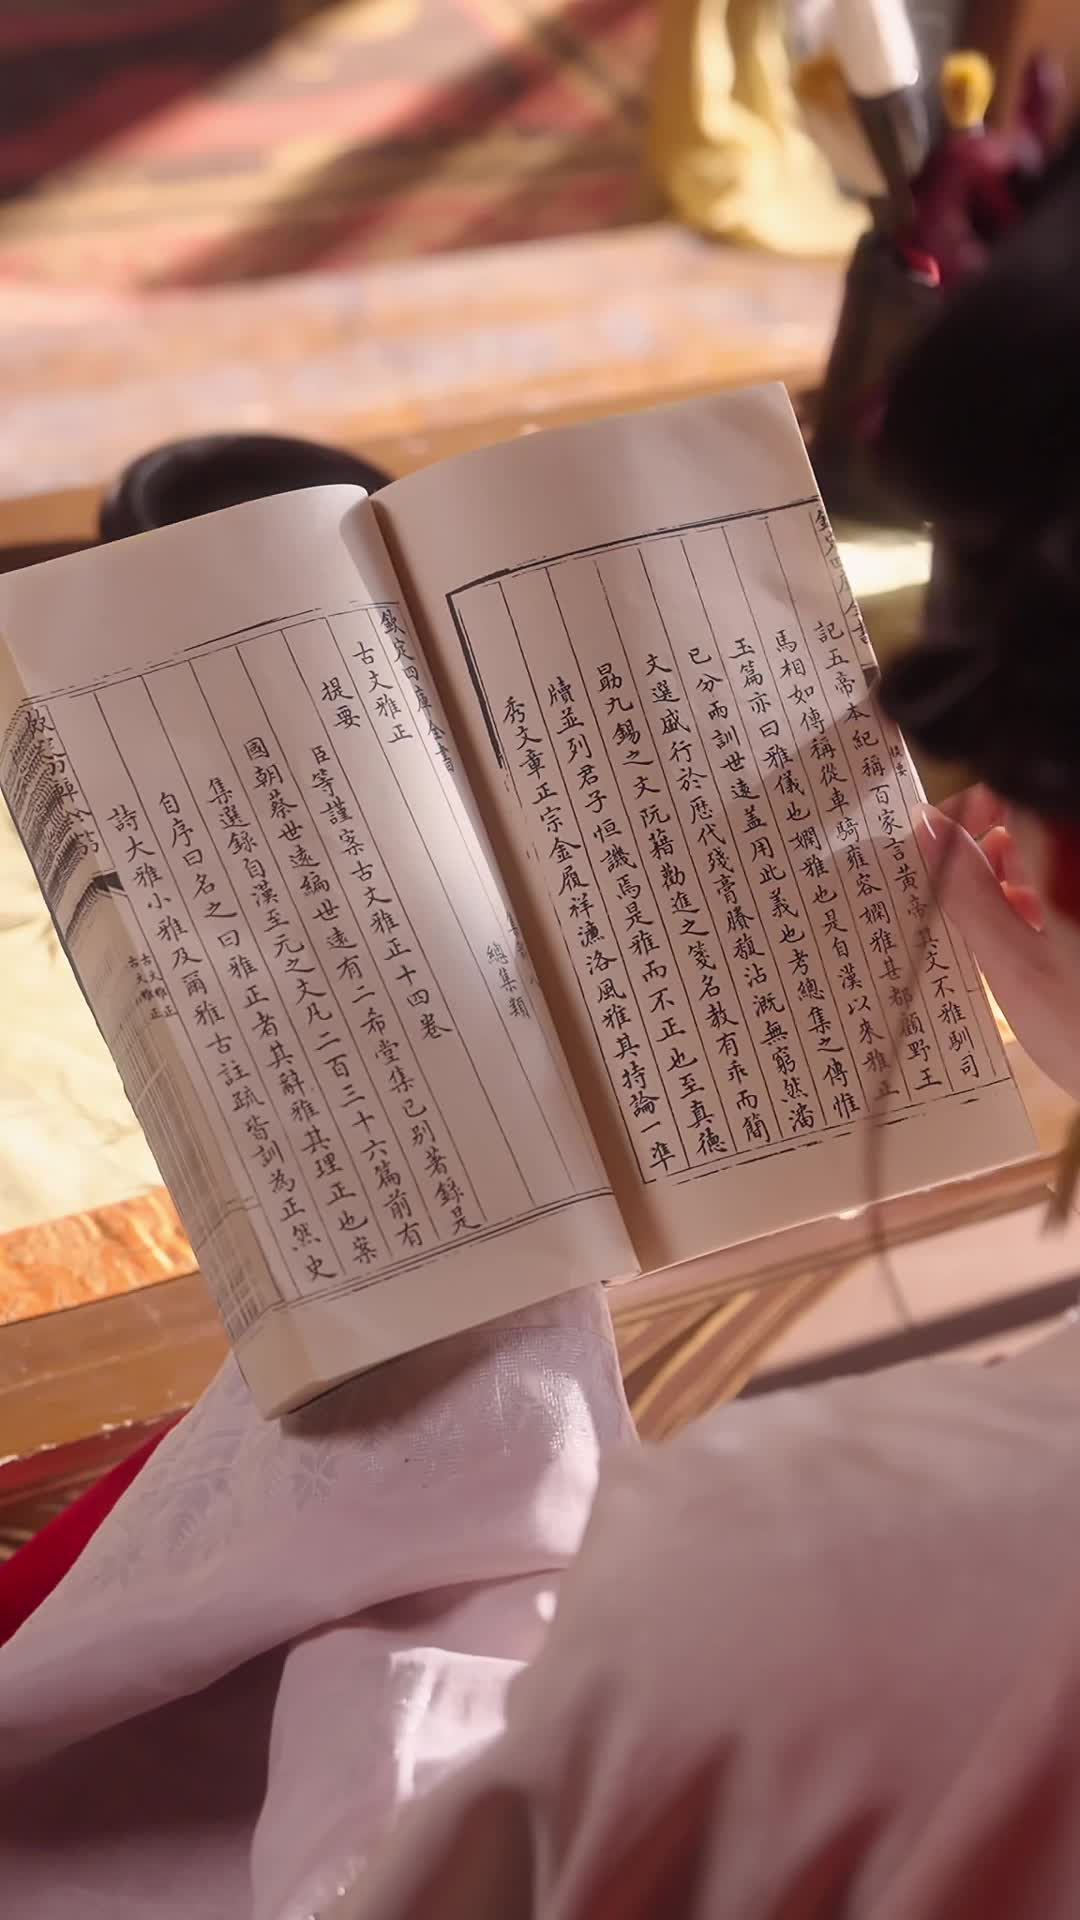 欽定四庫全書
記五帝本紀稱百家言黃帝其文不雅馴司
馬相如傳稱從車騎雍容嫻雅甚都顧野王
玉篇亦曰雅儀也嫻雅也是自漢以來雅正
已分兩訓世遠蓋用此義也考總集之傳惟
文選盛行於歷代殘膏賸馥沾溉無窮然潘
勗九錫之文阮籍勸進之箋名教有乖而簡
牘並列君子恒譏焉是雅而不正也至真德
秀文章正宗金履祥濂洛風雅其持論一準
欽定四庫全書
古文雅正 總集類
提要
臣等謹案古文雅正十四卷
國朝蔡世遠編世遠有二希堂集已別著錄是
集選錄自漢至元之文凡二百三十六篇前有
自序曰名之曰雅正者其辭雅其理正也案
詩大雅小雅及爾雅古註疏皆訓為正然史